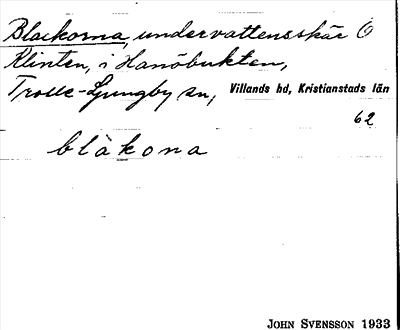 Blackorna, undervattensskär Ö
Klinten, i Hanöbukten,
Trolle-Ljungby sn, Villands hd, Kristianstads län
62
blåkona
JOHN SVENSSON 1933